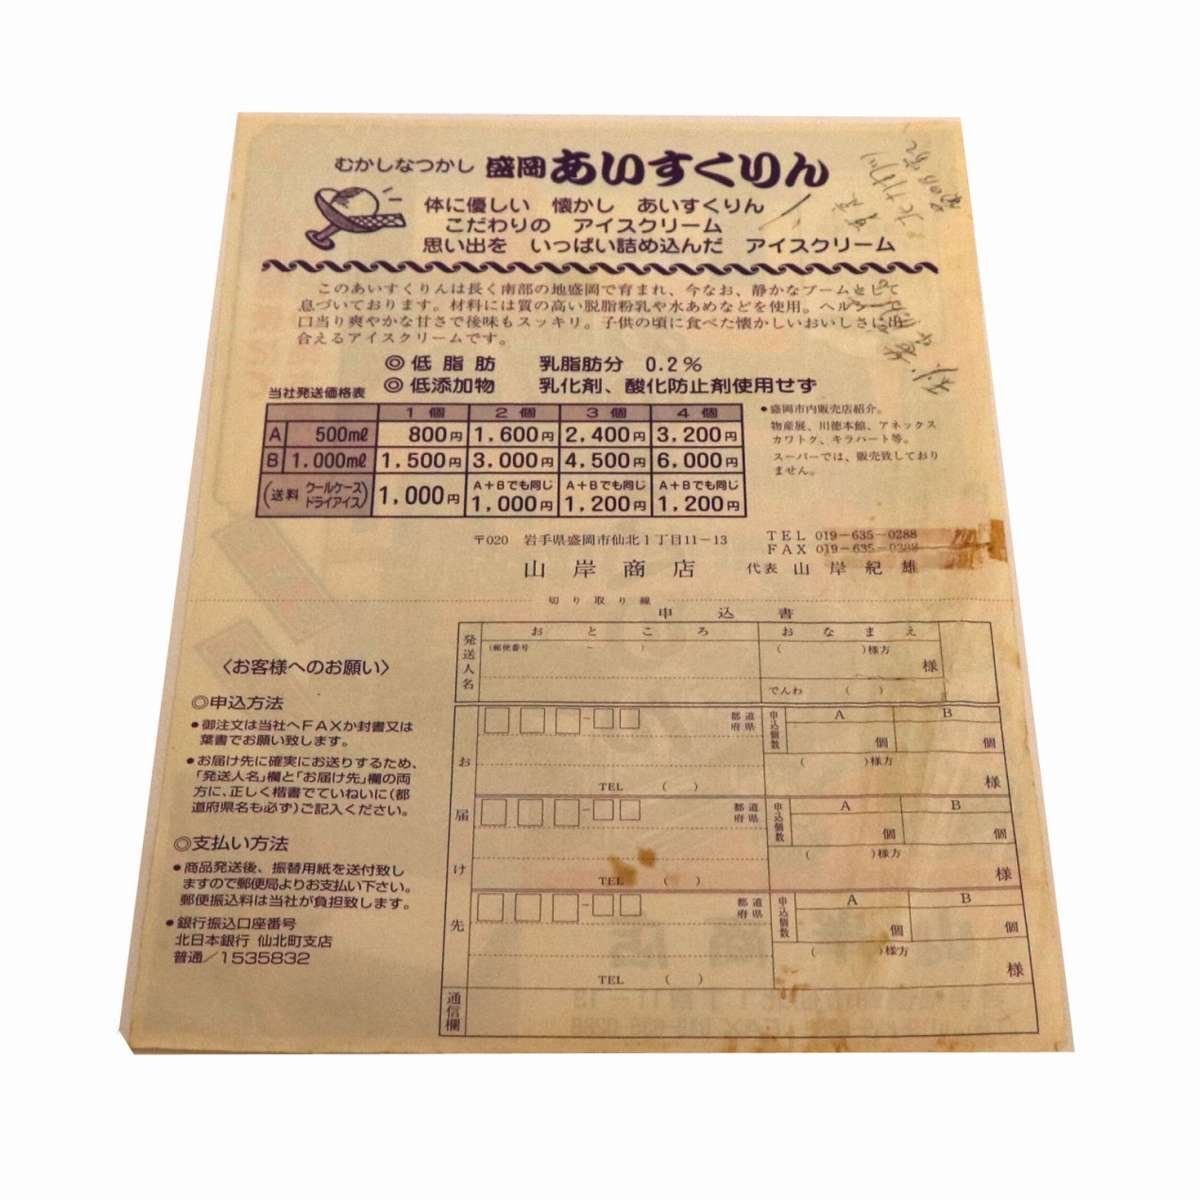 むかしなつかし 盛岡 あいすくりん
体に優しい 懐かし あいすくりん
こだわりの アイスクリーム
思い出を いっぱい詰め込んだ アイスクリーム
このあいすくりんは長く南部の地盛岡で育まれ、今なお、静かなブームとして
息づいております。材料には質の高い脱脂粉乳や水あめなどを使用。ヘルシー
口当り爽やかな甘さで後味もスッキリ。子供の頃に食べた懐かしいおいしさに出
合えるアイスクリームです。
◎低脂肪 乳脂肪分 0.2%
◎低添加物 乳化剤、酸化防止剤使用せず
当社発送価格表
1個 2個 3個 4個
A 500mℓ 800円 1,600円 2,400円 3,200円
B 1.000mℓ 1,500円 3.000円 4,500円 6,000円
(送料 クールケース ドライアイス) 1,000円 A+Bでも同じ 1,000円 A+Bでも同じ 1,200円 A+Bでも同じ 1,200円
●盛岡市内販売店紹介。
物産展、川徳本館、アネックス
カワトク、キラハート等。
スーパーでは、販売致しており
ません。
〒020 岩手県盛岡市仙北1丁目11-13
TEL 019-635-0288
FAX 019-635-0288
山岸商店 代表 山岸紀雄
切り取り線
申込書
発送人名 おところ おなまえ
(郵便番号 - ) ( )様方
様
でんわ ( )
お届け先
都道府県 申込個数 A B
個 個
( )様方
様
TEL ( )
都道府県 申込個数 A B
個 個
( )様方
様
TEL ( )
都道府県 申込個数 A B
個 個
( )様方
様
TEL ( )
通信欄
〈お客様へのお願い〉
◎申込方法
●御注文は当社へFAXか封書又は
葉書でお願い致します。
●お届け先に確実にお送りするため、
「発送人名」欄と「お届け先」欄の両
方に、正しく楷書でていねいに(都
道府県名も必ず)ご記入ください。
◎支払い方法
●商品発送後、振替用紙を送付致し
ますので郵便局よりお支払い下さい。
郵便振込料は当社が負担致します。
●銀行振込口座番号
北日本銀行 仙北町支店
普通/1535832